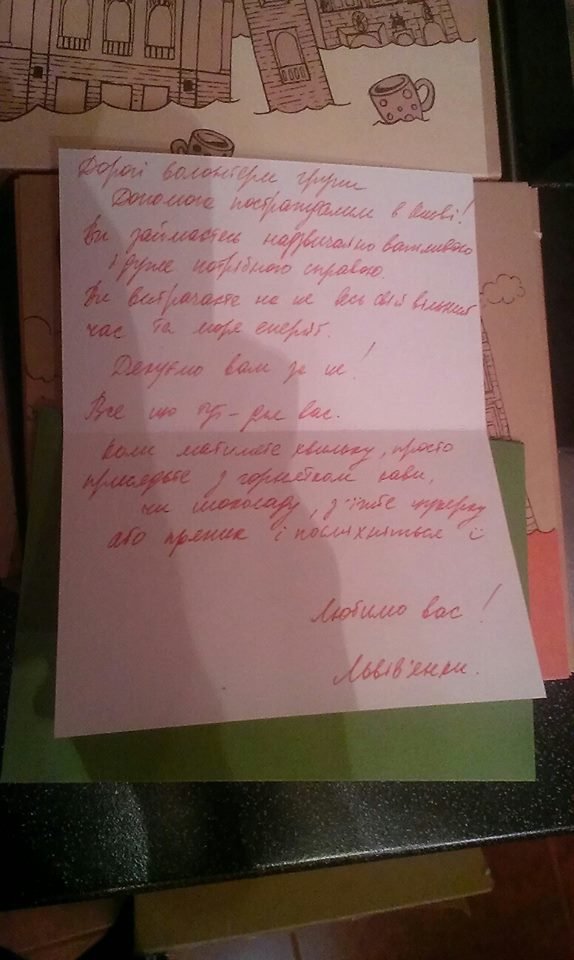 Дорогі волонтери групи
Допомога постраждалим в Києві!
Ви займаєтесь надзвичайно важливою
і дуже потрібною справою.
Ви витрачаєте на це весь свій вільний
час та море енергії.
Дякуємо вам за це!
Все що тут - для вас.
Коли матимете хвильку, просто
присядьте з горнятком кави,
чи шоколаду, з'їжте цукерку
або пряник і посміхніться ї
Любимо вас!
Львів'янки.